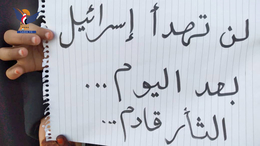 لن تهدأ إسرائيل
بعد اليوم...
الثأر قادم...